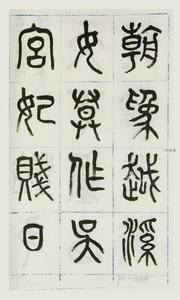 朝為越溪
女莫作吳
宮妃賤日